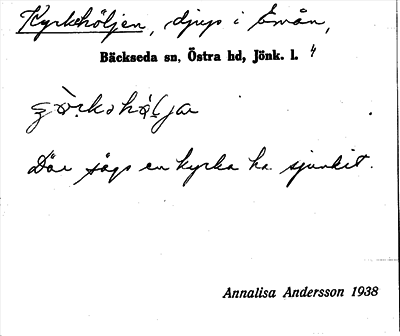 Kyrkhöljen, djup i Emån,
Bäckseda sn, Östra hd, Jönk. l. 4
Där sägs en kyrka ha sjunkit.
Annalisa Andersson 1938